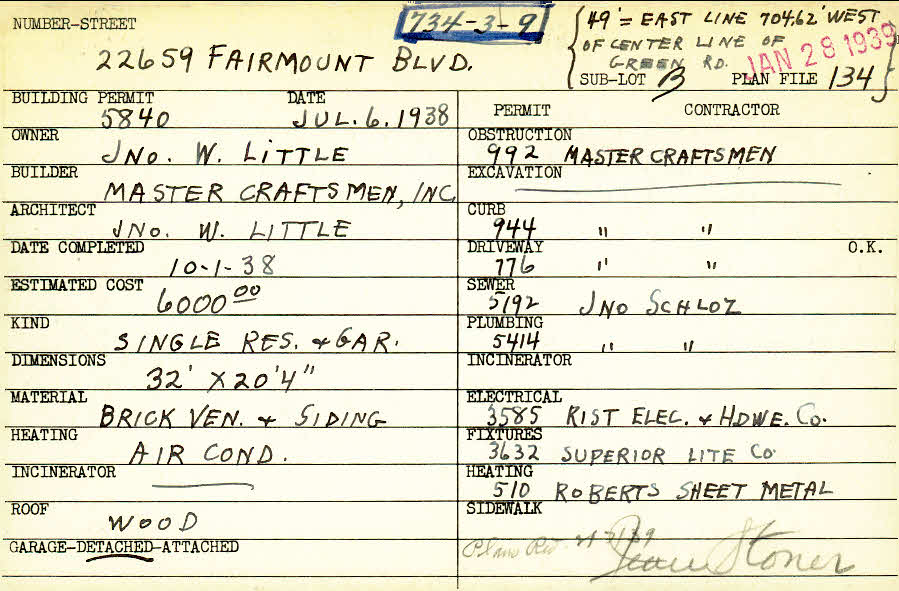 NUMBER-STREET
734-3-9
22659 FAIRMOUNT BLVD.
49' = EAST LINE 704.62' WEST
OF CENTER LINE OF
GREEN RD.
JAN 28 1939
SUB-LOT B PLAN FILE 134
BUILDING PERMIT DATE
5840 JUL. 6. 1938
OWNER
JNO. W. LITTLE
BUILDER
MASTER CRAFTSMEN, INC
ARCHITECT
JNO. W. LITTLE
DATE COMPLETED
10-1-38
ESTIMATED COST
6000 00
KIND
SINGLE RES. & GAR.
DIMENSIONS
32' X 20'4"
MATERIAL
BRICK VEN. & SIDING
HEATING
AIR COND.
INCINERATOR
ROOF
WOOD
GARAGE-DETACHED-ATTACHED
PERMIT CONTRACTOR
OBSTRUCTION
992 MASTER CRAFTSMEN
EXCAVATION
CURB
944 " "
DRIVEWAY O.K.
776 " "
SEWER
5192 JNO SCHLOZ
PLUMBING
5414 " "
INCINERATOR
ELECTRICAL
3585 RIST ELEC. & HDWE. CO.
FIXTURES
3632 SUPERIOR LITE CO
HEATING
510 ROBERTS SHEET METAL
SIDEWALK
Plans Stoner